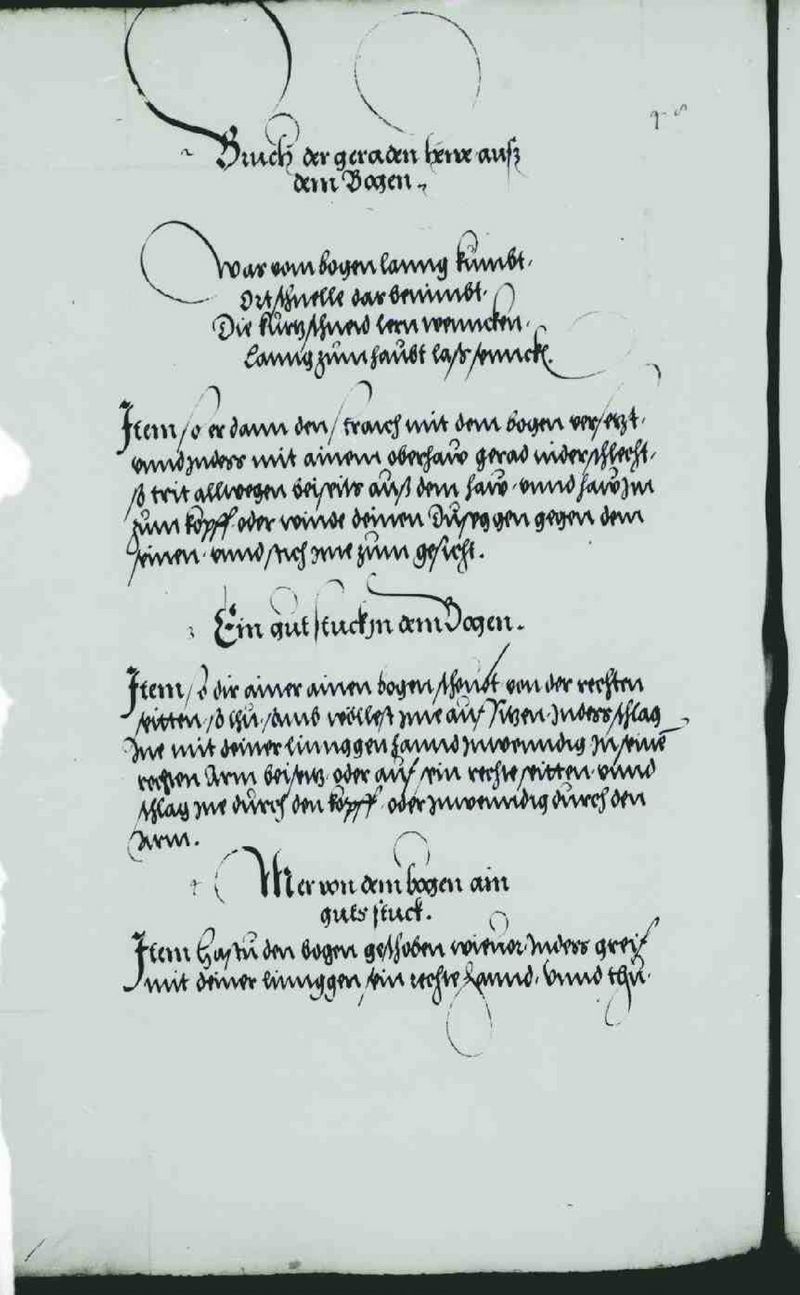 Bruch der geraden hew auß
dem Bogen
War vom bogen lanng kumbt.
Ort schnelle das benimbt.
Die kurtz schneid lern wenncken.
Lanng zum haubt lass sennckh.
Item so er dann den straich mit dem bogen versetzt.
vnnd Inndes mit ainem oberhaw gerad niderschlecht.
so trit allwegen beiseits auß dem haw. vnnd haw Im
zum kopff. oder winde deinen Duseggen gegen dem
seinen. vnnd stich Ime zum gesicht.
Ein gut stuck In dem Bogen.
Item so dir ainer ainen bogen scheubt von der rechten
seitten. so thu. samb wöllest Ime auf sitzen. Inndes schlag
Ime mit deiner linnggen hannd Innwenndig In seinē
rechten Arm beiseitz. oder auf sein rechte seitten. vnnd
schlag Ime durch den kopff. oder Inwenndig durch den
Arm.
Mer von dem bogen ain
guts stuck.
Item hastu den bogen geschoben wie uor. Inndes greif
mit deiner linnggen sein rechte hannd. vnnd thu.